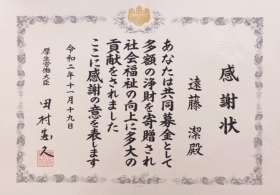 感謝状
遠藤 潔殿
あなたは共同募金として
多額の浄財を寄贈され
社会福祉の向上に多大の
貢献をされました
ここに感謝の意を表します
令和二年十一月十九日
厚生労働大臣 田村憲久